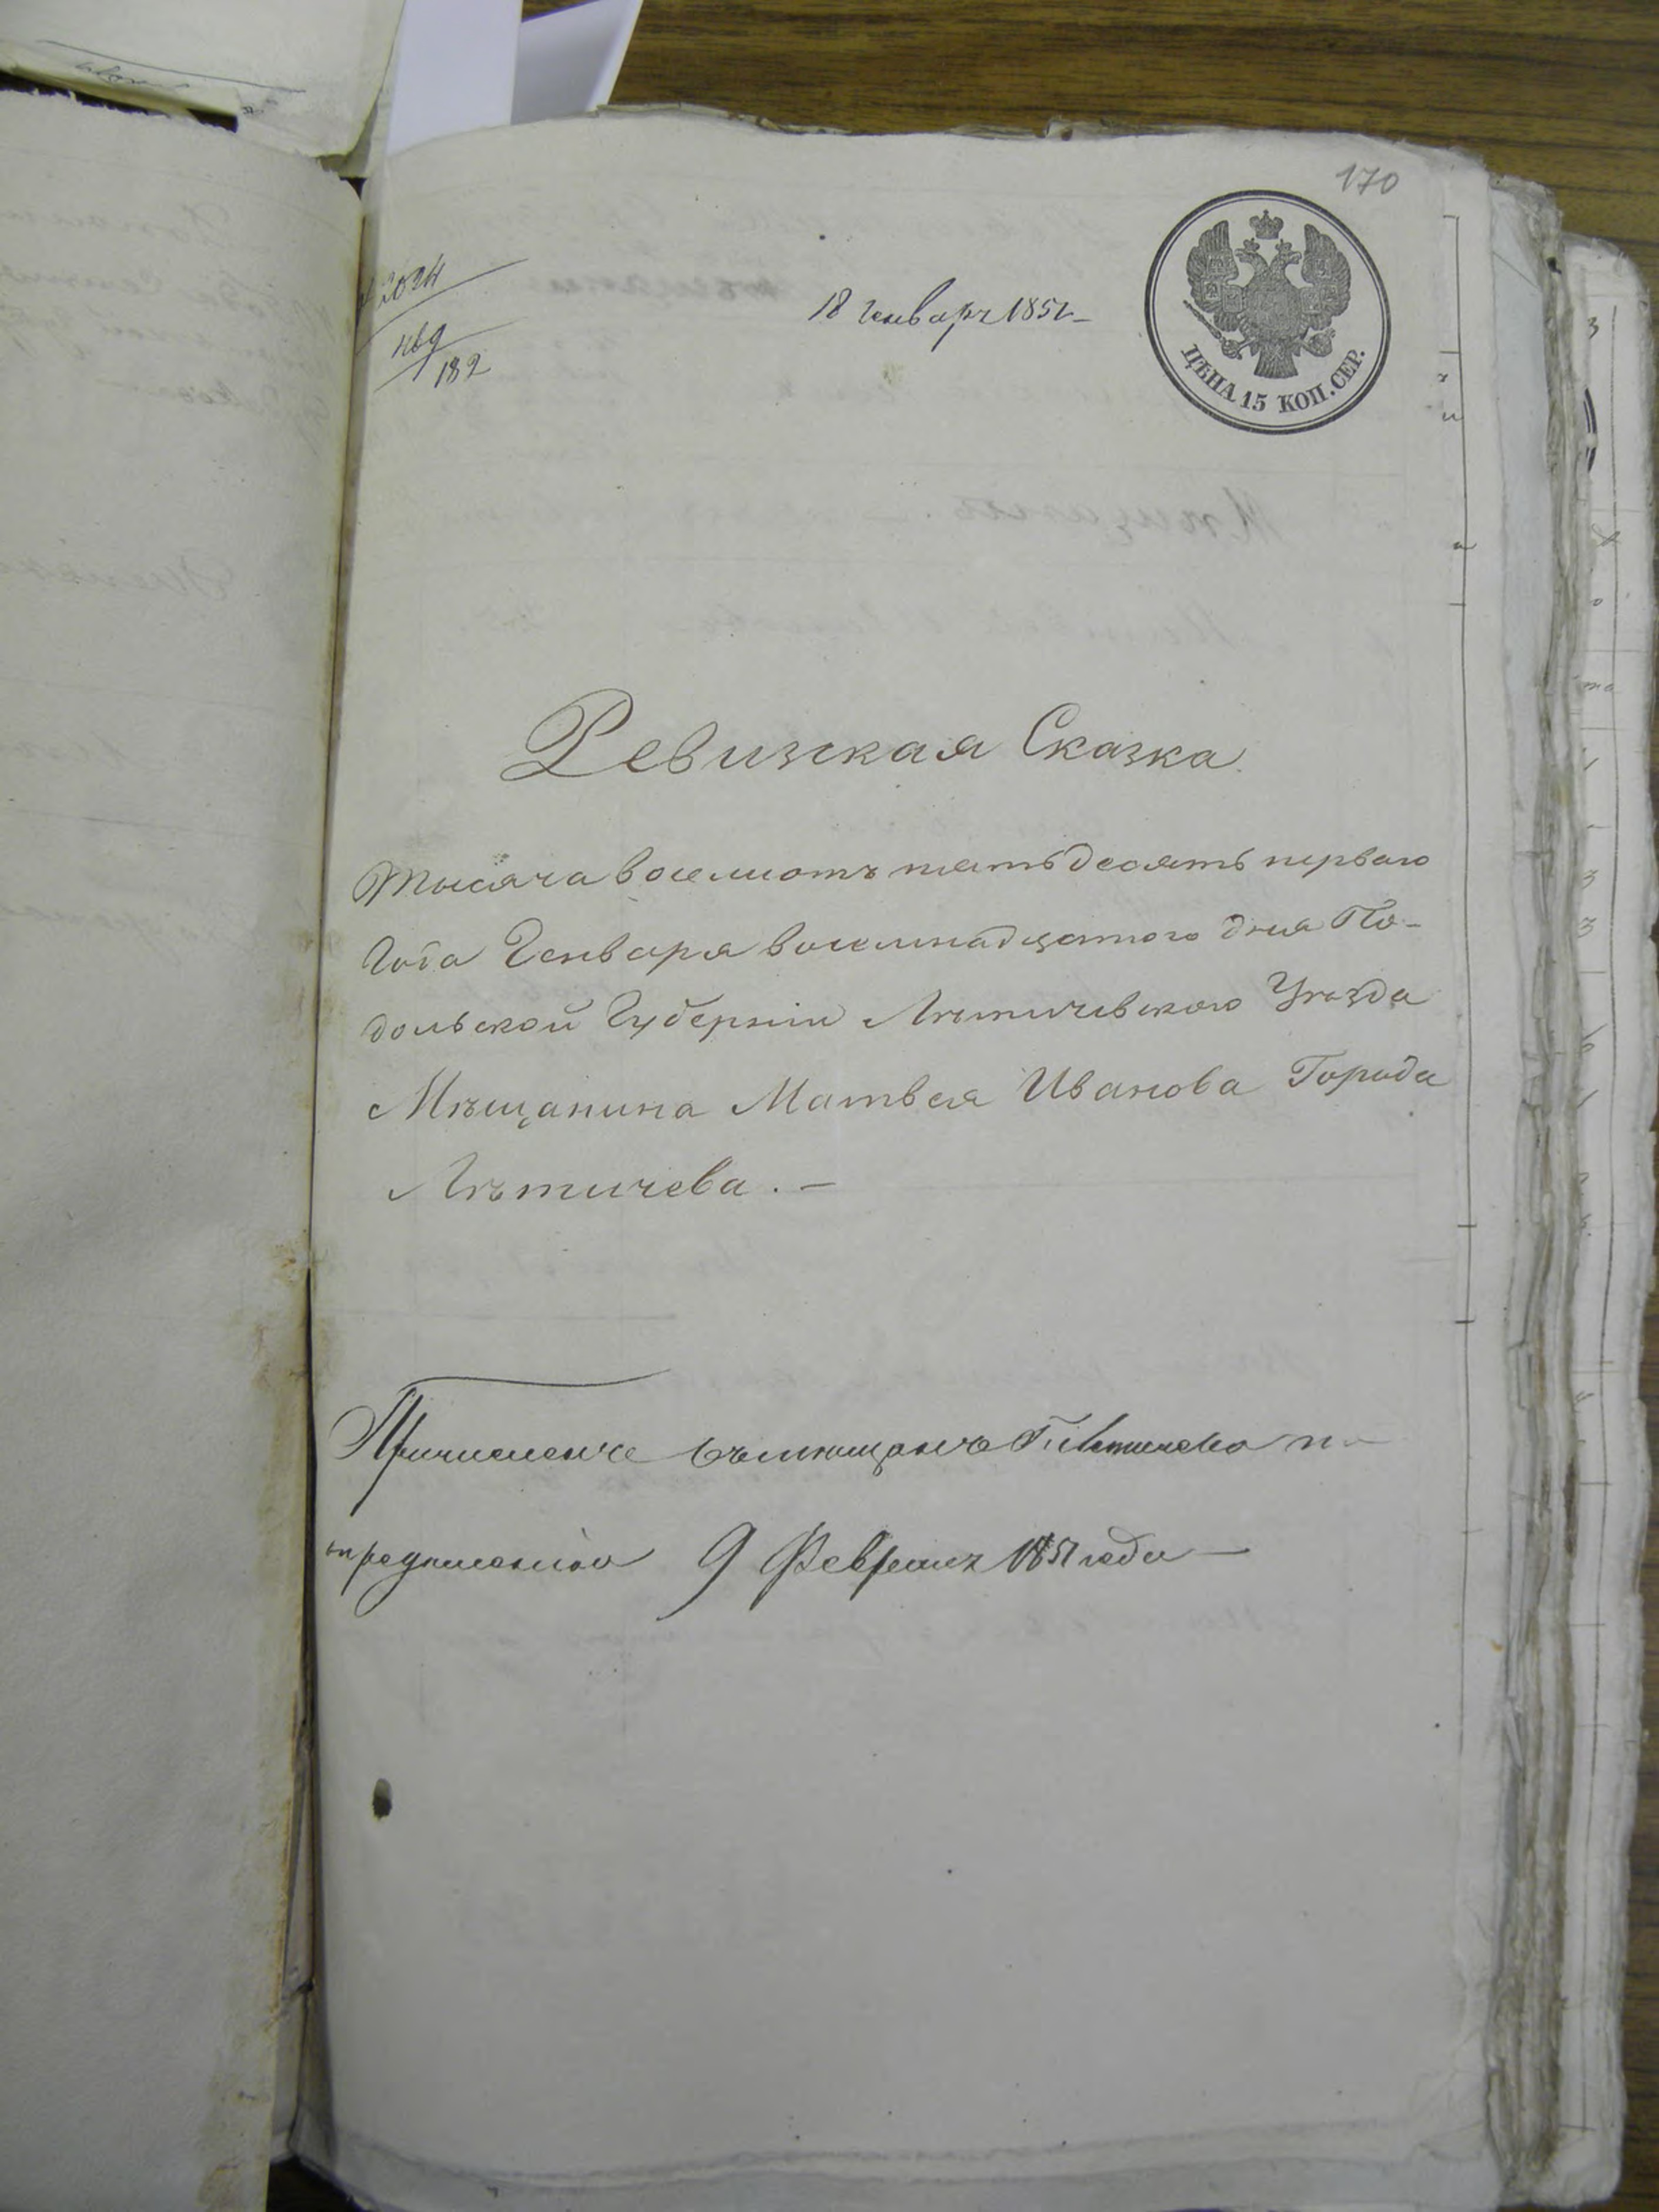 170
2024
182
18 Генваря 1851
ЦѢНА 15 КОП. СЕР.
Ревизская Сказка
Тысяча восемьсотъ пятьдесятъ перваго
Года Генваря восемнадцатого дня По-
дольской Губерніи Лѣтичевского Уѣзда
Мѣщанина Матвея Иванова Города
Лѣтичева. —
въ мѣщане Г. Летичева
9 Февраля 1851 года —